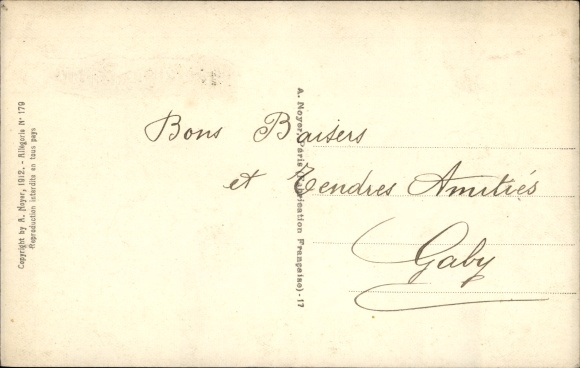 Copyright by A. Noyer, 1912. - Allégorie N° 179
Reproduction interdite en tous pays
A. Noyer, Paris (Fabrication Française) - 17
Bons Baisers
et Tendres Amitiés
Gaby